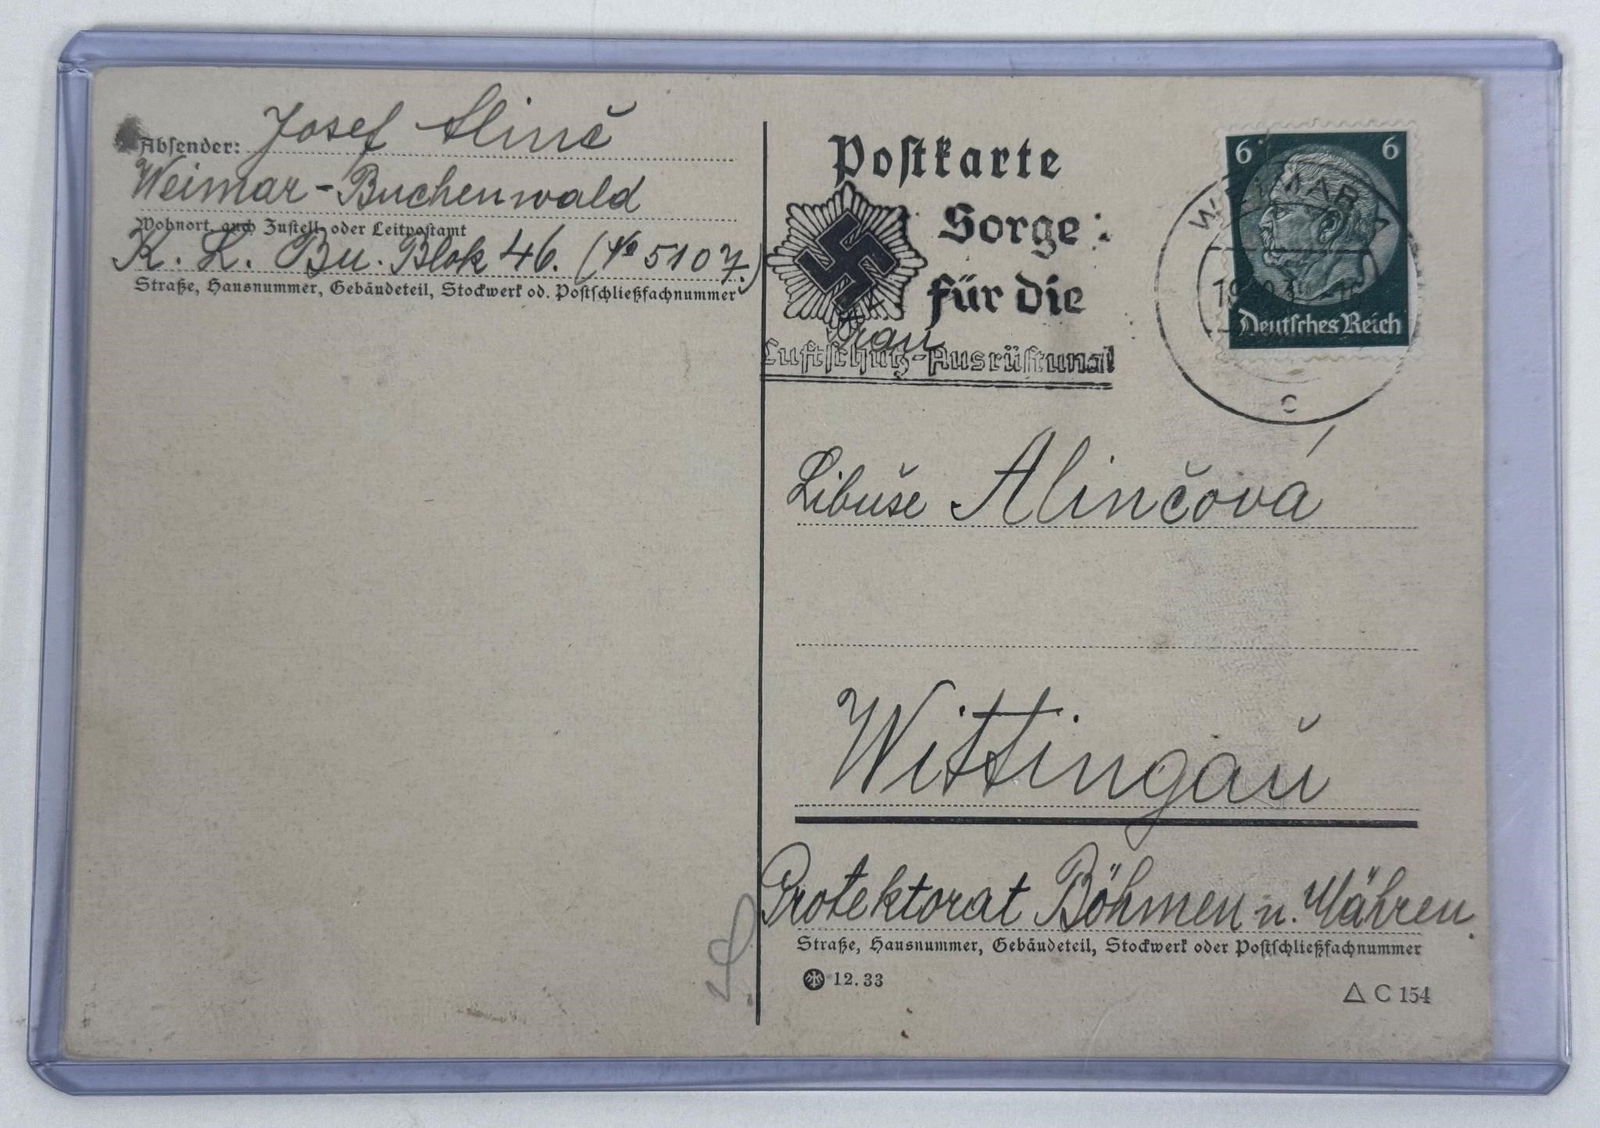 Absender: Josef Alinč
Weimar-Buchenwald
Wohnort, auch Zustell- oder Leitpostamt
K. L. Bu. Blok 46. (№ 5107.)
Straße, Hausnummer, Gebäudeteil, Stockwerk od. Postschließfachnummer
Postkarte
Sorge
für die
Luftschutz-Ausrüstung!
WEIMAR
c
6 6
Deutsches Reich
Frau
Libuše Alinčová
Wittingau
Protektorat Böhmen u. Mähren.
Straße, Hausnummer, Gebäudeteil, Stockwerk oder Postschließfachnummer
12.33
C 154